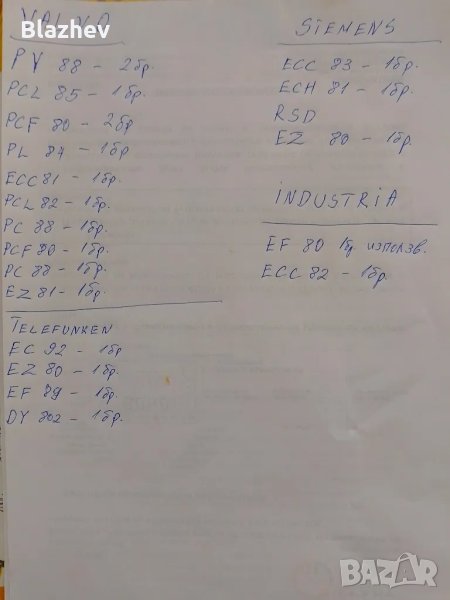 VALVO
Blazhev
PY 88 - 2бр.
PCL 85 - 1бр.
PCF 80 - 2бр
PL 84 - 1бр.
ECC 81 - 1бр.
PCL 82 - 1бр.
PC 88 - 1бр.
PCF 80 - 1бр.
PC 88 - 1бр.
EZ 81 - 1бр.
TELEFUNKEN
EC 92 - 1бр
EZ 80 - 1бр.
EF 89 - 1бр.
DY 802 - 1бр.
SIEMENS
ECC 83 - 1бр.
ECH 81 - 1бр.
RSD
EZ 80 - 1бр.
INDUSTRIA
EF 80 1бр използв.
ECC 82 - 1бр
BAZAR